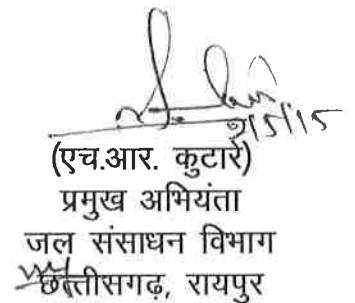 9/5/15
(एच.आर. कुटारे)
प्रमुख अभियंता
जल संसाधन विभाग
छत्तीसगढ़, रायपुर